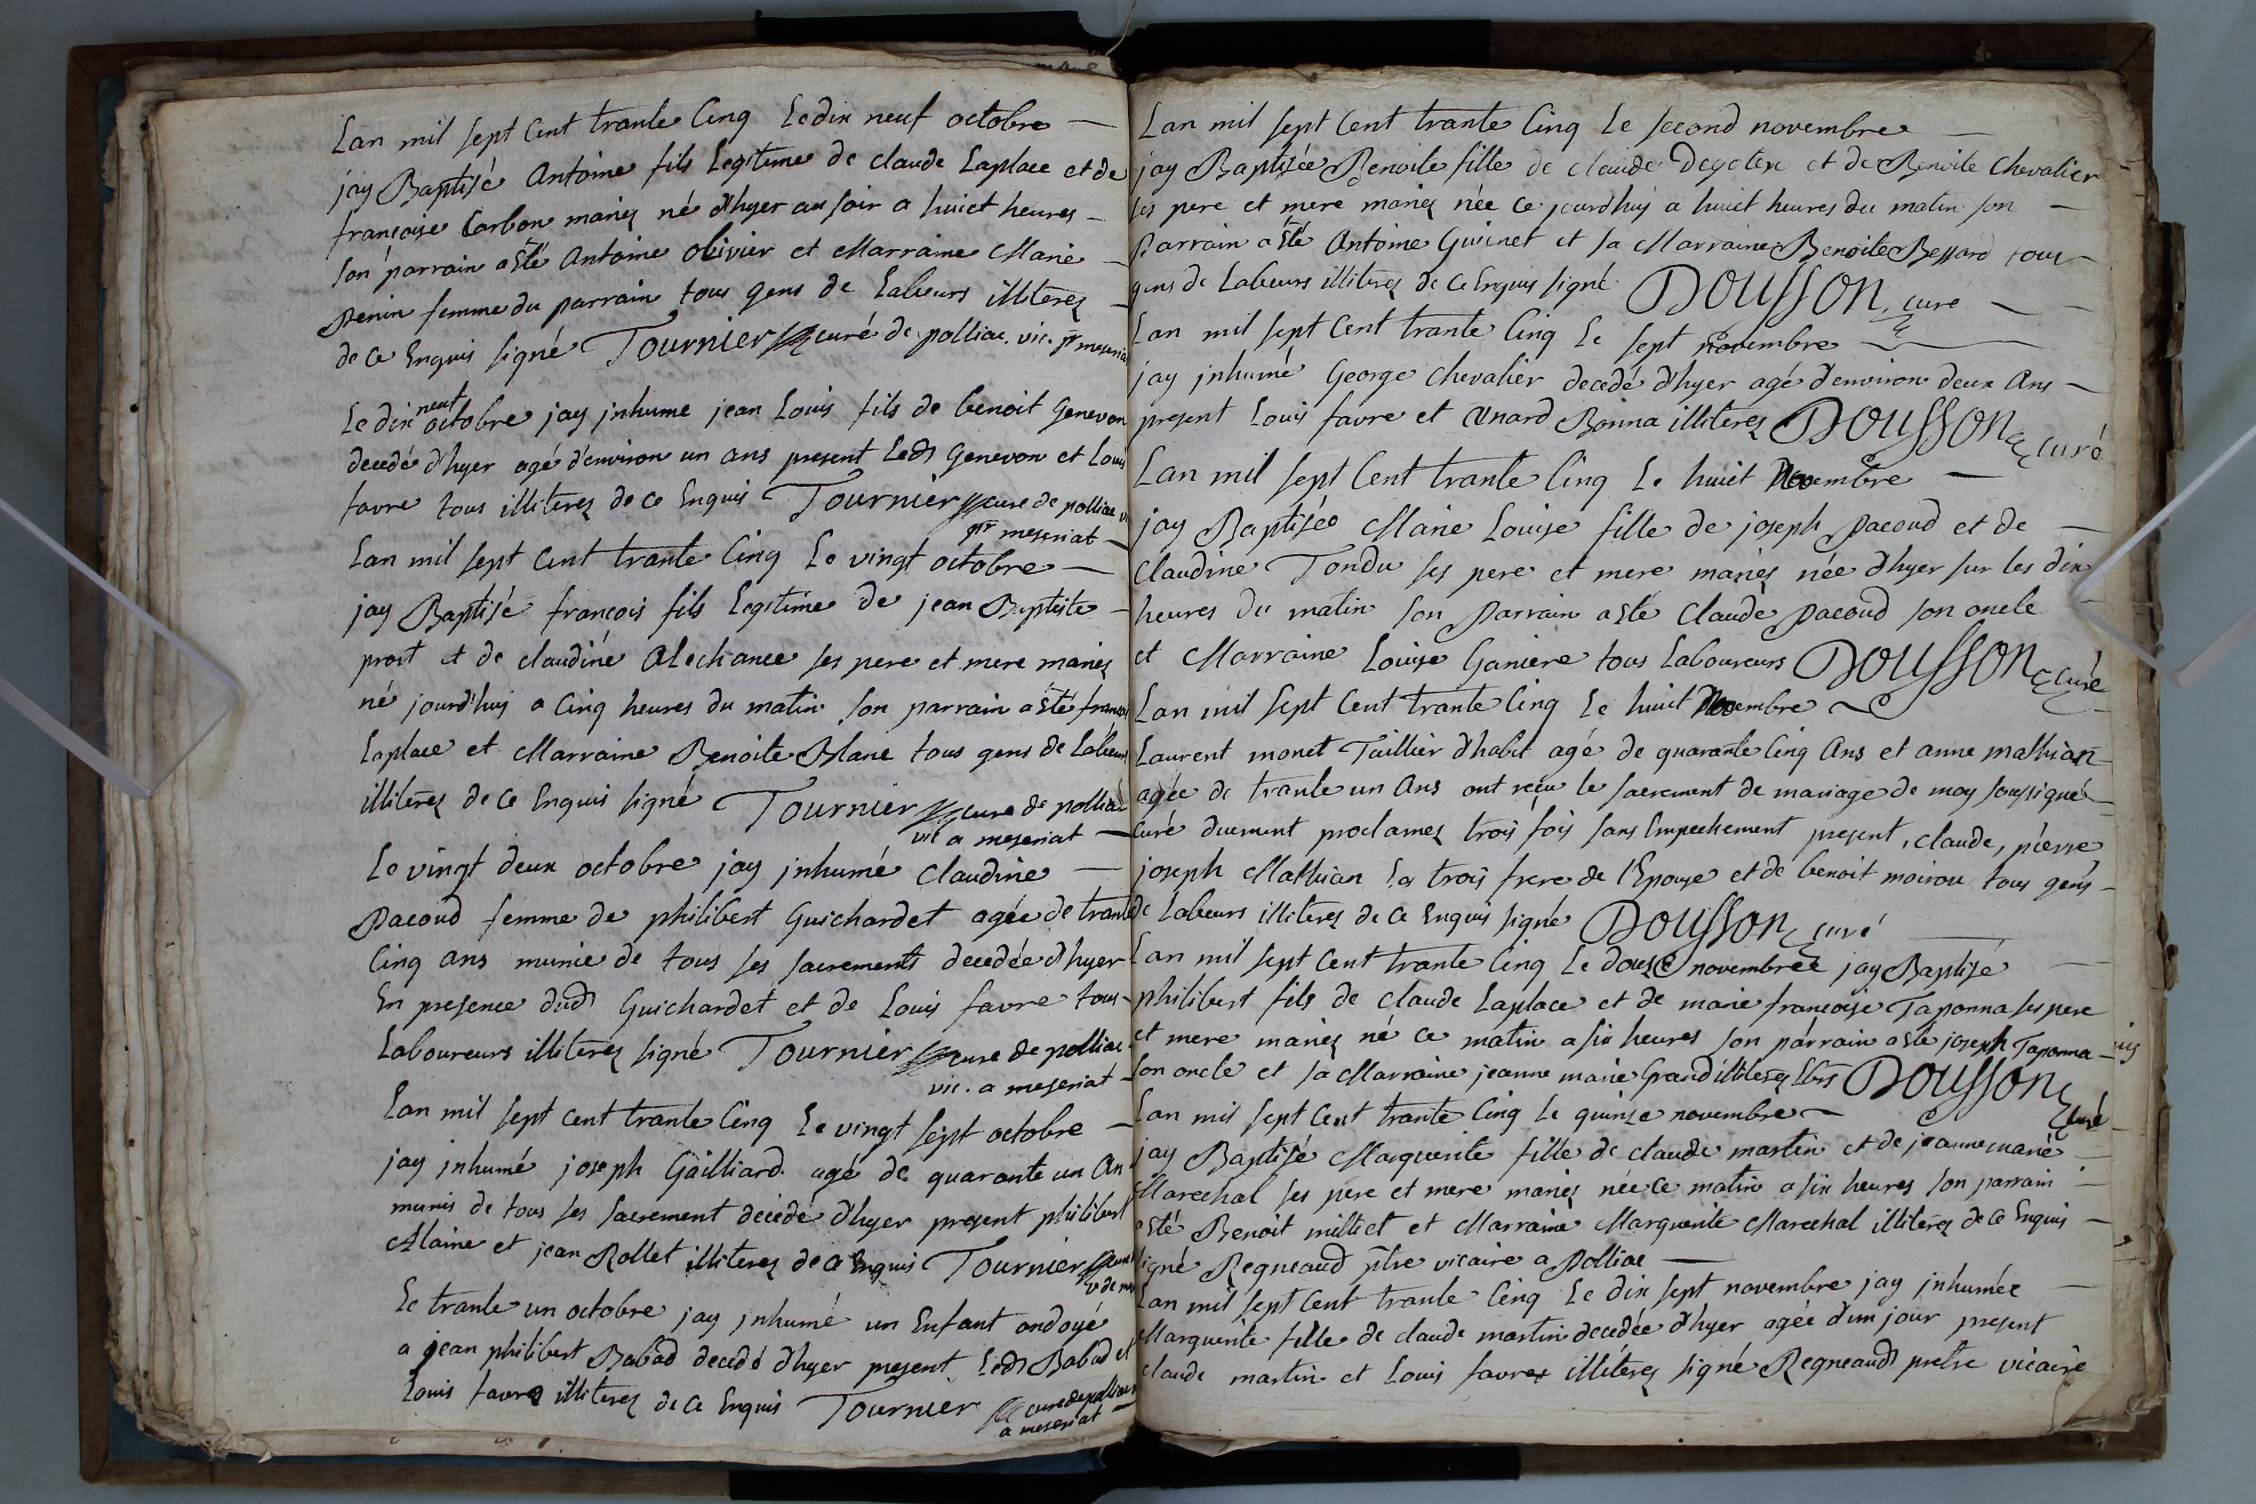 Lan mil sept Cent trante Cinq Le dix neuf octobre
jay Baptisé Antoine fils Legitime de claude Laplace et de
françoise Carbon mariez né d'hyer au soir a huict heures
son parrain a esté Antoine olivier et Marraine Marie
penin femme du parrain tous gens de Labeurs illiterez
de ce Enquis signé Tournier curé de polliac. vic. pr meseriat
Le dix neuf octobre jay jnhume jean Louis fils de benoit Genevon
decedé d'hyer agé d'environ un ans present Ledt Genevon et Louis
favre tous illiterez de ce Enquis Tournier cure de polliac v
pr meseriat
Lan mil sept Cent trante Cinq Le vingt octobre
jay Baptisé françois fils Legitime de jean Baptiste
prost et de claudine Alechance ses pere et mere mariez
né jourd'huy a Cinq heures du matin son parrain a esté françois
Laplace et Marraine Benoite Blanc tous gens de Labeurs
illiterez de ce Enquis signé Tournier cure de polliac
vic a meseriat
Le vingt deux octobre jay jnhumé Claudine
pacoud femme de philibert Guichardet agée de trante
Cinq ans munie de tous ses sacrements decedée d'hyer
En presence dudt Guichardet et de Louis favre tous
Laboureurs illiterez signé Tournier cure de polliac
vic. a meseriat
Lan mil sept cent trante Cinq Le vingt sept octobre
jay jnhumé joseph Gailliard agé de quarante un An
munis de tous ses sacrement decedé d'hyer present philibert
Alaine et jean Rollet illiterez de ce Enquis Tournier cure
v de
Le trante un octobre jay jnhumé un Enfant ondoyé
a jean philibert Babad decedé d'hyer present Ledt Babad et
Louis favre illiterez de ce Enquis Tournier cure de polliac
a meseriat
Lan mil sept Cent trante Cinq Le second novembre
jay Baptizée Benoite fille de claude Degoten et de Benoite Chevalier
ses pere et mere mariez née ce jourd'huy a huict heures du matin son
Parrain a esté Antoine Guicnet et sa Marraine Benoite Bessard tous
gens de Labeurs illiterez de ce Enquis signé DOUSSON curé
Lan mil sept Cent trante Cinq Le sept novembre
jay jnhumé George Chevalier decedé d'hyer agé d'environ deux Ans
present Louis favre et Anard Bonna illiterez DOUSSON curé
Lan mil sept Cent trante Cinq Le huict Novembre
jay Baptisée Marie Louise fille de joseph pacoud et de
Claudine Tondu ses pere et mere mariez née d'hyer sur les dix
heures du matin son parrain a esté Claude pacoud son oncle
et Marraine Louise Ganiere tous Laboureurs DOUSSON curé
Lan mil sept Cent trante Cinq Le huict Novembre
Laurent monet Taillier d'habit agé de quarante Cinq Ans et anne mathian
agée de trante un Ans ont reçu le sacrement de mariage de moy soussigné
curé duement proclamez trois fois sans Empechement present, claude, pierre
joseph Mathian les trois frere de l'Epouse et de benoit moiroux tous gens
de Labeurs illiterez de ce Enquis signé DOUSSON curé
Lan mil sept Cent trante Cinq Le douse novembre jay Baptisé
philibert fils de claude Laplace et de marie françoise Taponna ses pere
et mere mariez né ce matin a six heures son parrain a esté joseph Taponna
son oncle et sa Marraine jeanne marie Grand illiterez DOUSSON curé
Lan mil sept Cent trante Cinq Le quinze novembre
jay Baptisé Marguerite fille de claude martin et de jeanne marie
Marechal ses pere et mere mariez née ce matin a six heures son parrain
esté Benoit milliet et Marraine Marguerite Marechal illiterez de ce Enquis
signé Regneaud ptre vicaire a Polliac
Lan mil sept Cent trante Cinq Le dix sept novembre jay jnhumée
Marguerite fille de claude martin decedée d'hyer agée d'un jour present
claude martin et Louis favre illiterez signé Regneaud pretre vicaire